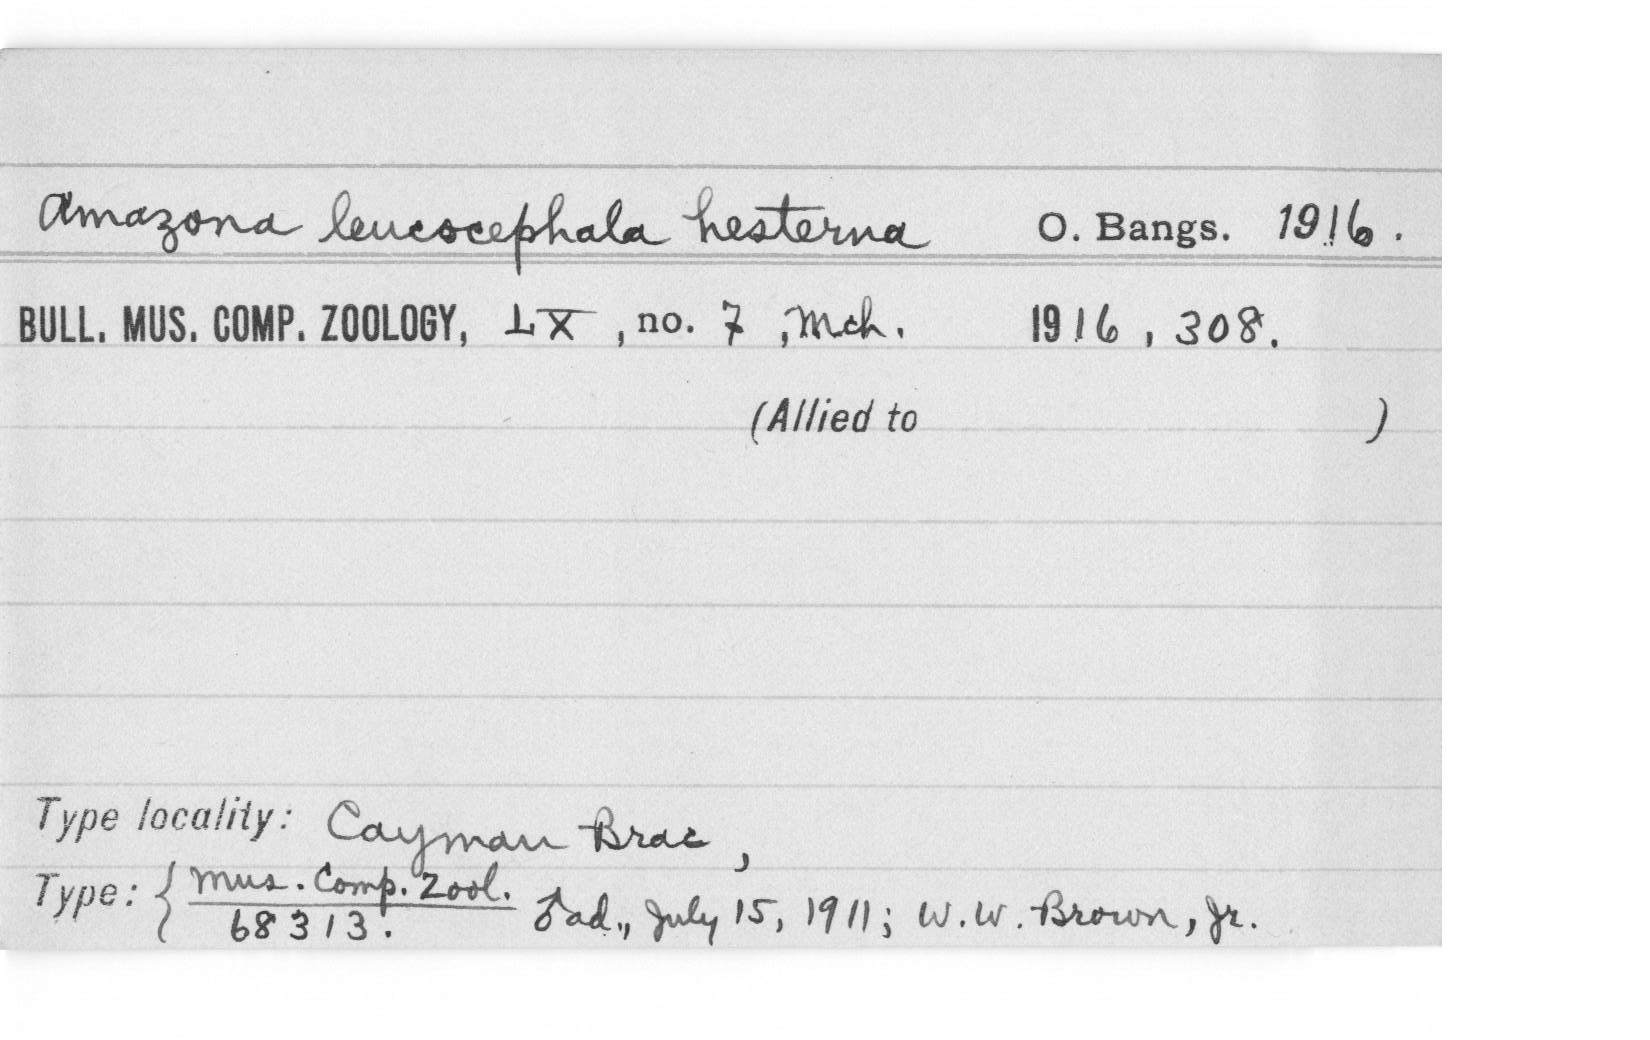 Amazona leucocephala hesterna O. Bangs. 1916.
BULL. MUS. COMP. ZOOLOGY, LX, no. 7, Mch. 1916, 308.
(Allied to )
Type locality: Cayman Brac,
Type: { Mus. Comp. Zool.
68313. ♂ ad., July 15, 1911; W. W. Brown, Jr.